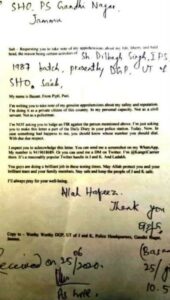 SHO, PS Gandhi Nagar,
Jammu
Sub :- Requesting you to take note of my apprehensions about my life, liberty and hard
head, the reason being certain activities of Sh Dilbagh Singh, IPS,
1987 batch, presently DGP, UT of
SHO. Said,
My name is Basant. From
I'm writing you to take note of my genuine apprehensions about my safety and reputation.
I'm doing it as a private citizen of this country. In my personal capacity. Not as a civil
servant. Not as a policeman.
I'm NOT asking you to lodge an FIR against the person mentioned above. I'm just asking
you to make this letter a part of the Daily Diary in your police station. Today. Now. In
case something bad happens to me, you should know whose number you should dial.
With that the matter
I expect you to acknowledge this letter. You can send me a screenshot on my WhatsApp.
My number is Or you can send me a DM on Twitter. I'm
there. It's a reasonably popular Twitter handle in J and K. And Ladakh.
You guys are doing a brilliant job in these testing times. May Allah protect you and your
brilliant team and your family members. Stay safe and keep the people of J and K safe.
I'll always pray for your well-being.
Allah Hafeez.
Thank you
Copy to - Worthy DGP, UT of J and K, Police Headquarters, Gandhi Nagar,
Jammu.
Received on 25/06
/2020.
25/
10.5